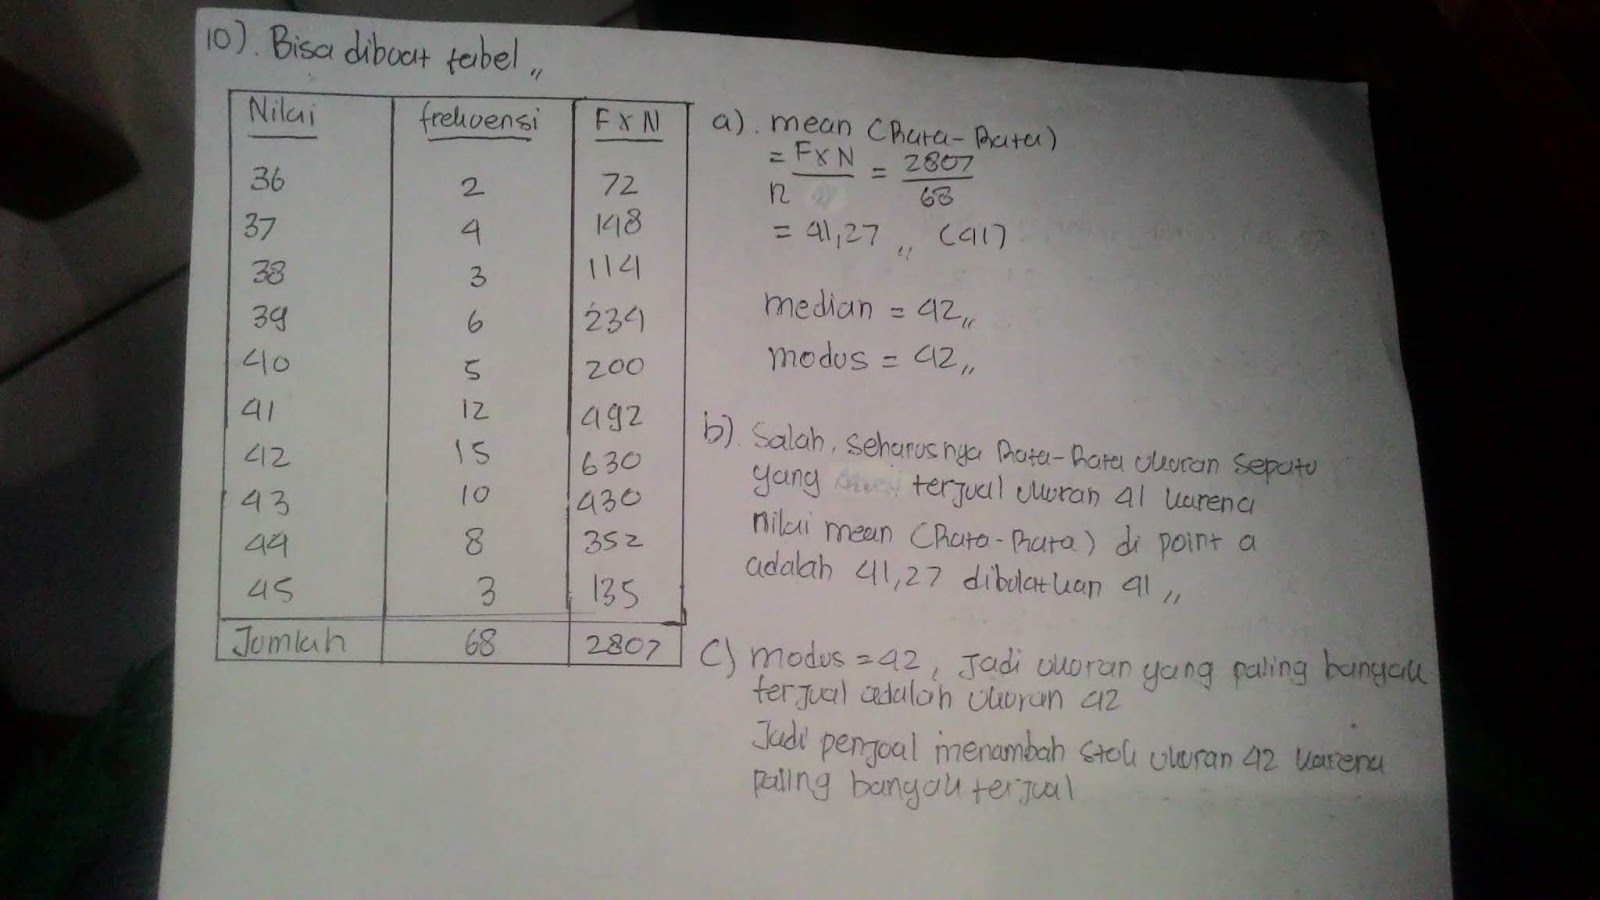 10). Bisa dibuat tabel,,
Nilai frekuensi F x N
36 2 72
37 4 148
38 3 114
39 6 234
40 5 200
41 12 492
42 15 630
43 10 430
44 8 352
45 3 135
Jumlah 68 2807
a). mean (Rata-Rata)
= F x N / n = 2807 / 68
= 41,27 ,, (41)
median = 42,,
modus = 42,,
b). Salah, seharusnya Rata-Rata ukuran sepatu
yang terjual ukuran 41 karena
nilai mean (Rata-Rata) di point a
adalah 41,27 dibulatkan 41 ,,
C) modus = 42, jadi ukuran yang paling banyak
terjual adalah ukuran 42
Jadi penjual menambah stok ukuran 42 karena
paling banyak terjual